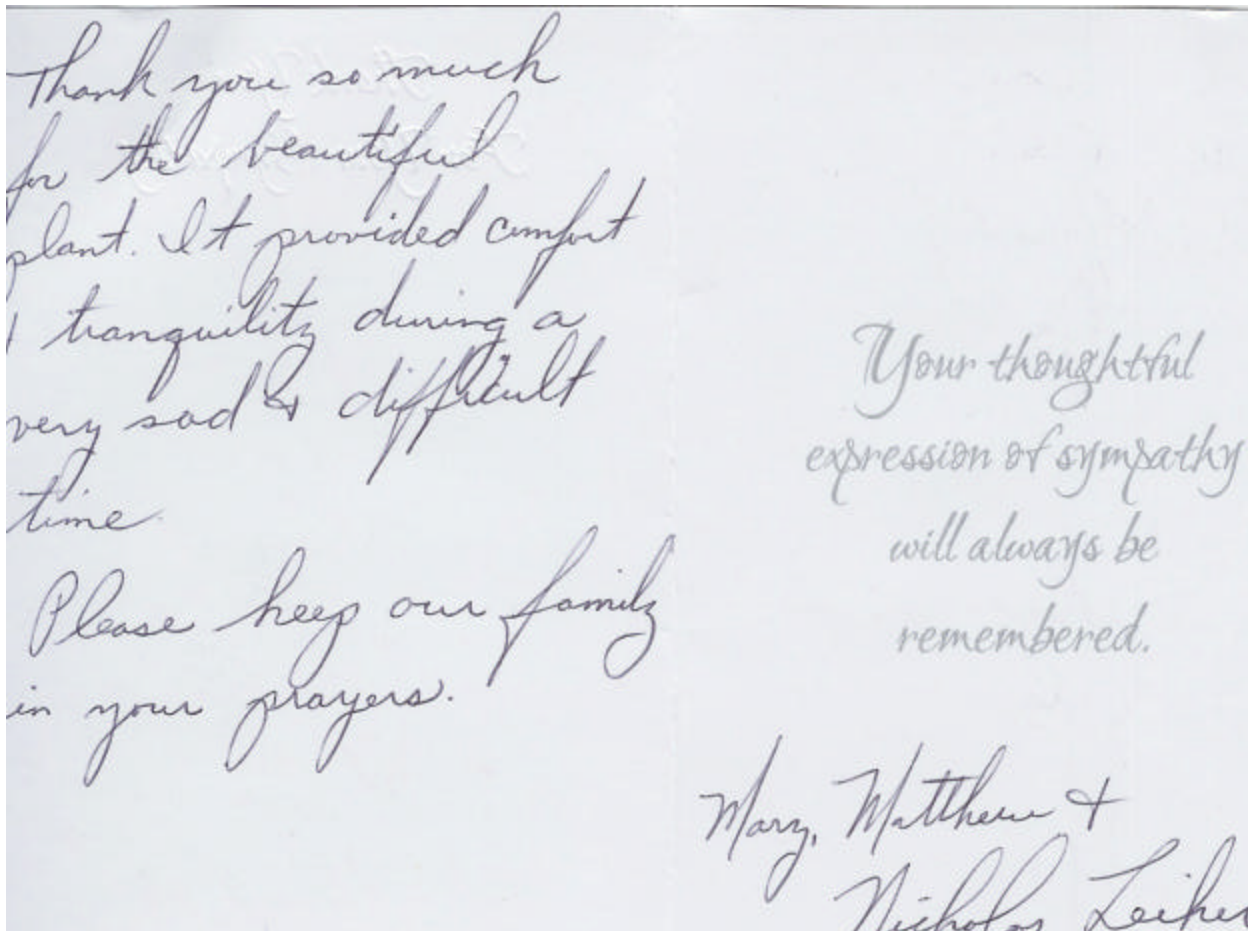 Thank you so much
for the beautiful
plant. It provided comfort
& tranquility during a
very sad & difficult
time.
Please keep our family
in your prayers.
Your thoughtful
expression of sympathy
will always be
remembered.
Mary, Matthew &
Nicholas